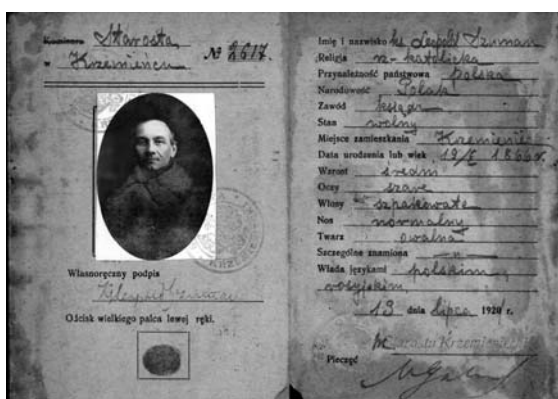 Starosta
w Krzemieńcu
№ 2617.
Własnoręczny podpis
Odcisk wielkiego palca lewej ręki.
Imię i nazwisko ks. Leopold Szuman
Religja rz-katolicka
Przynależność państwowa polska
Narodowość Polak
Zawód ksiądz
Stan wolny
Miejsce zamieszkania Krzemieniec
Data urodzenia lub wiek 1866 r.
Wzrost średni
Oczy szare
Włosy szpakowate
Nos normalny
Twarz owalna
Szczególne znamiona — „ —
Włada językami polskim,
rosyjskim
13 dnia lipca 1921 r.
Starosta Krzemieniecki
Pieczęć